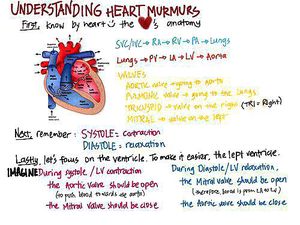 UNDERSTANDING HEART MURMURS
First, know by heart the 's anatomy
SVC/IVC → RA → RV → PA → Lungs
Lungs → PV → LA → LV → Aorta
VALVES
AORTIC valve - going to aorta
valve - going to the lungs
TRICUSPID → valve on the right (TRI = Right)
MITRAL → valve on the left
Next, remember: SYSTOLE = contraction
DIASTOLE = relaxation
Lastly, let's focus on the ventricle. To make it easier, the left ventricle.
IMAGINE During systole / LV contraction
the Aortic Valve should be open
(to push blood towards the aorta)
the Mitral Valve should be close
During Diastole / LV relaxation,
the Mitral valve should be open
(therefore, blood is from LA to LV)
the Aortic valve should be close